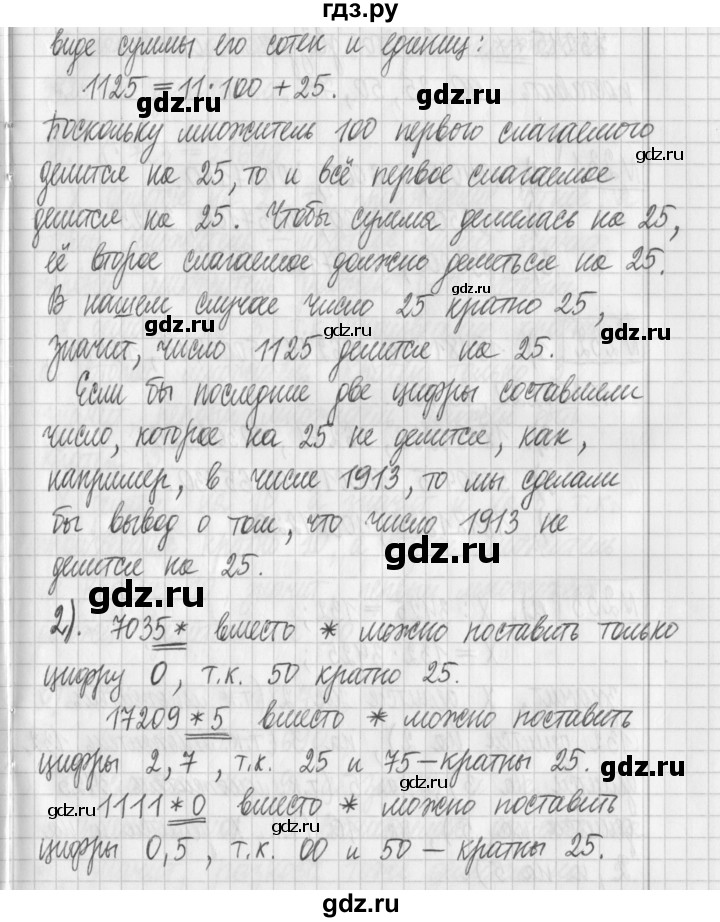 гдз.ру
виде суммы его сотен и единиц:
1125 = 11·100 + 25.
gdz.ru gdz.ru
Поскольку множитель 100 первого слагаемого
gdz.ru
делится на 25, то и всё первое слагаемое
gdz.ru
делится на 25. Чтобы сумма делилась на 25,
её второе слагаемое должно делиться на 25.
gdz.ru
В нашем случае число 25 кратно 25,
gdz.ru gdz.ru
значит, число 1125 делится на 25.
Если бы последние две цифры составляли
число, которое на 25 не делится, как,
например, в числе 1913, то мы сделали
бы вывод о том, что число 1913 не
gdz.ru
делится на 25.
gdz.ru
2). 7035* вместо * можно поставить только
цифру 0, т.к. 50 кратно 25.
17209*5 вместо * можно поставить
цифры 2,7, т.к. 25 и 75 – кратны 25.
gdz.ru gdz.ru
gdz.ru 1111*0 вместо * можно поставить
gdz.ru
цифры 0,5, т.к. 00 и 50 – кратны 25.
gdz.ru gdz.ru